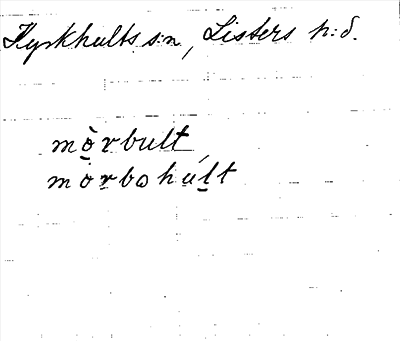 Kyrkhults s:n, Listers h:d.
mò̱rbult,
mòrbohúḻt